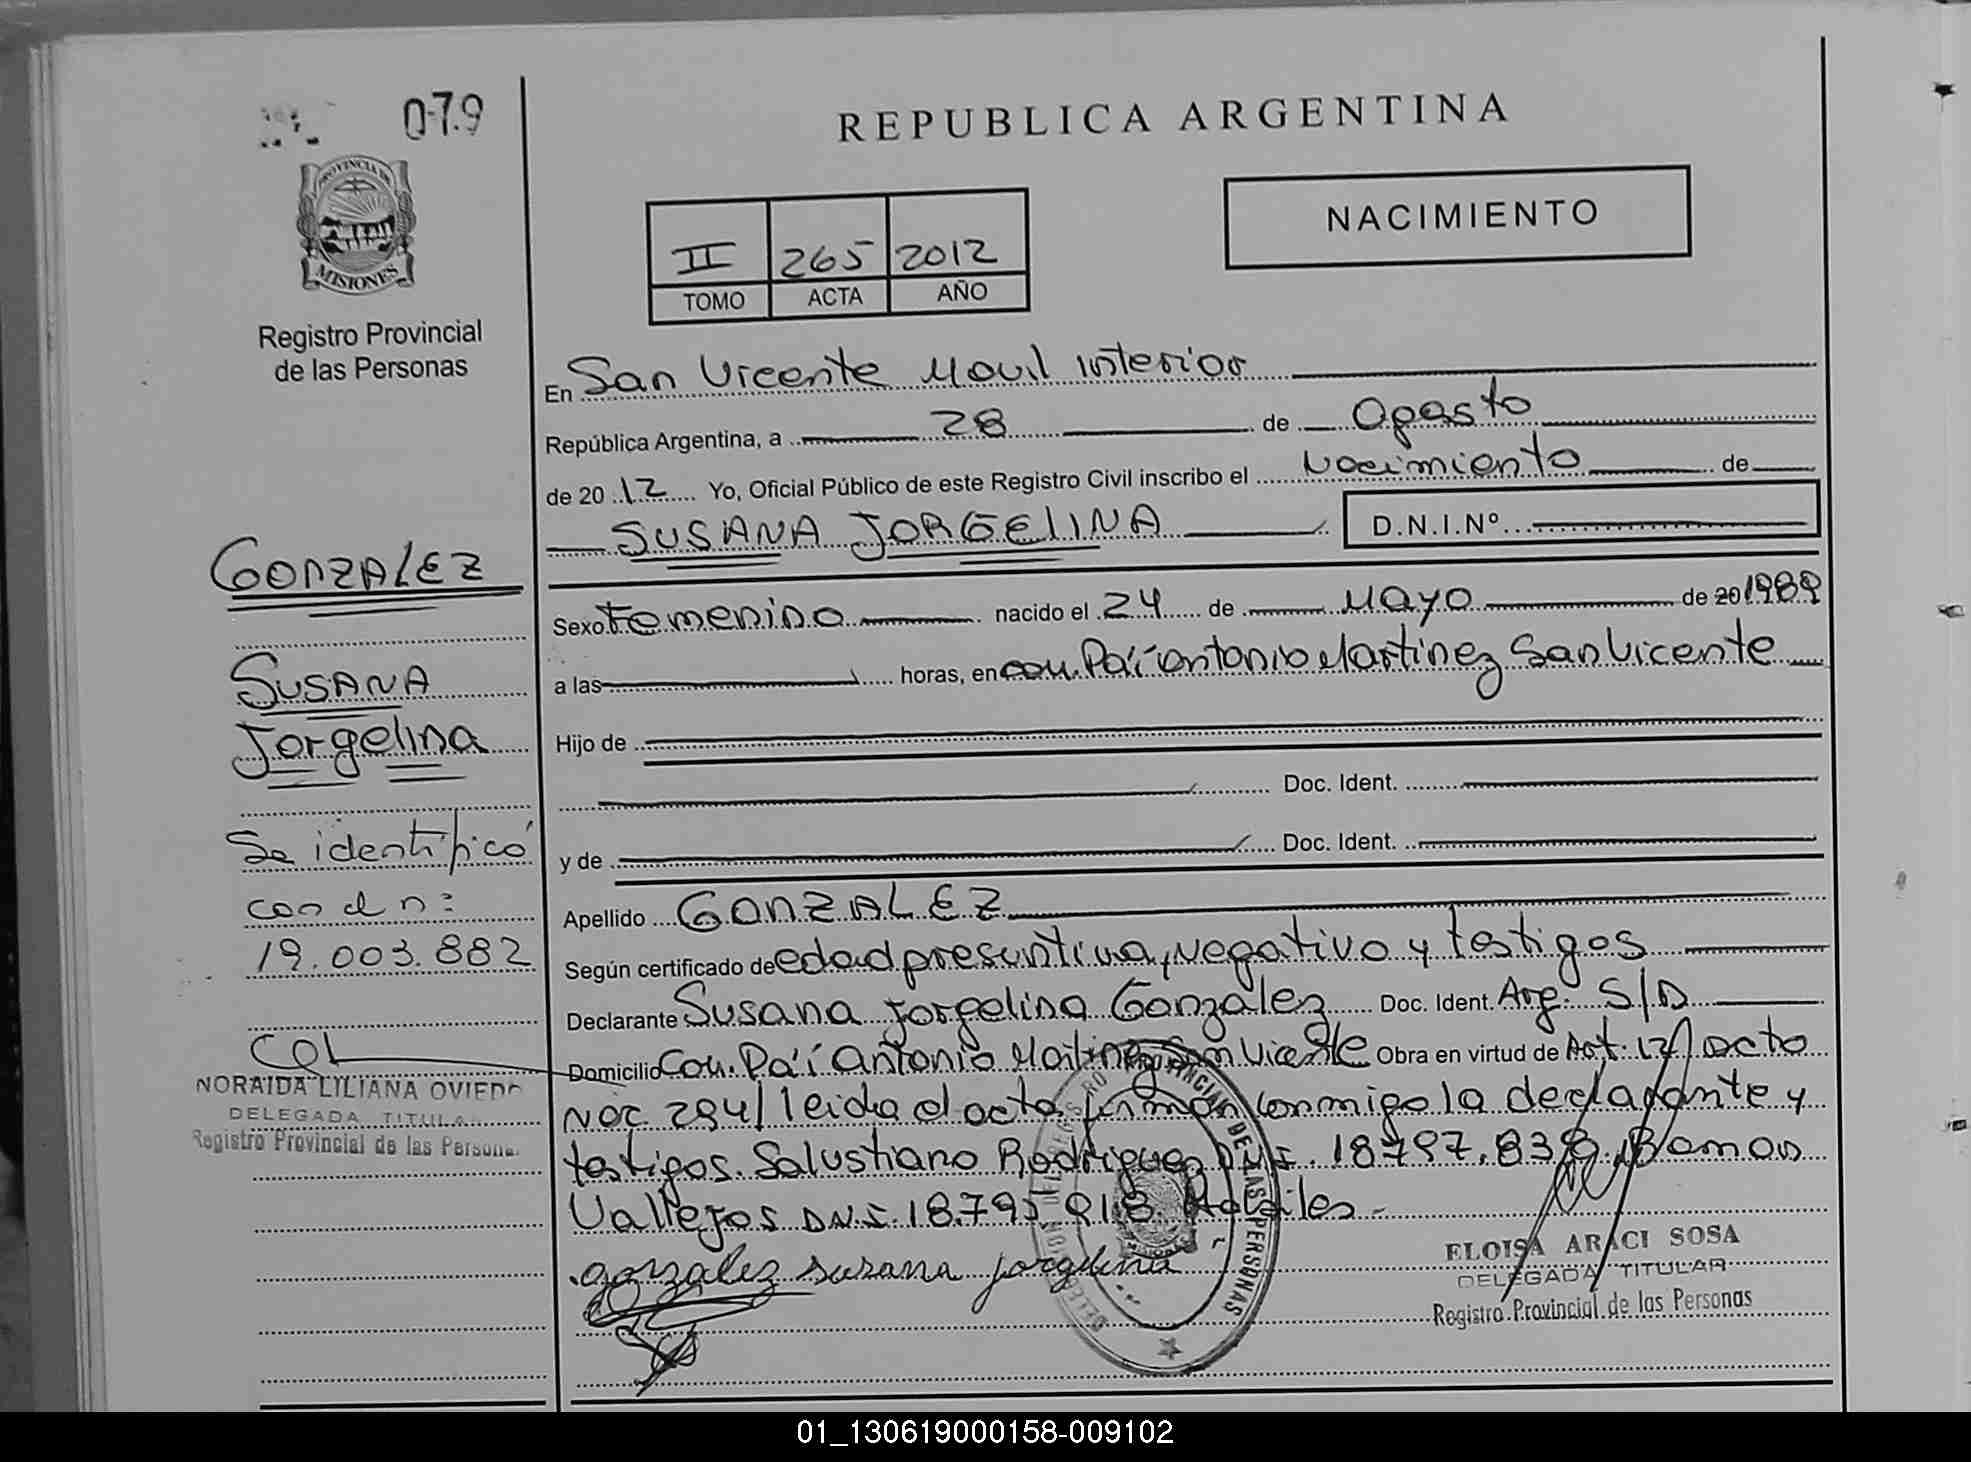 079
PROVINCIA DE
MISIONES
Registro Provincial
de las Personas
GONZALEZ
SUSANA
Jorgelina
Se identificó
con dn:
19.003.882
NORAIDA LILIANA OVIEDO
DELEGADA TITULAR
Registro Provincial de las Persona
REPUBLICA ARGENTINA
II 265 2012
TOMO ACTA AÑO
NACIMIENTO
En San Vicente Movil interior
República Argentina, a 28 de Agosto
de 2012 Yo, Oficial Público de este Registro Civil inscribo el Nacimiento de
SUSANA JORGELINA D.N.I.Nº
Sexo Femenino nacido el 24 de Mayo de 20 1989
a las horas, en com. Pai Antonio Martinez San Vicente
Hijo de
Doc. Ident.
y de Doc. Ident.
Apellido GONZALEZ
Según certificado de edad presuntiva, negativo y testigos
Declarante Susana Jorgelina Gonzalez Doc. Ident. Arg. S/D
Domicilio Com. Pai Antonio Martinez San Vicente Obra en virtud de Art. 12 / Dcto
Nac 294/ leida el acta firman conmigo la declarante y
testigos. Salustiano Rodriguez DNI. 18797.839. Ramon
Vallejos DNI. 18.795 918
gonzalez susana jorgelina
ELOISA ARACI SOSA
DELEGADA TITULAR
Registro Provincial de las Personas
01_130619000158-009102